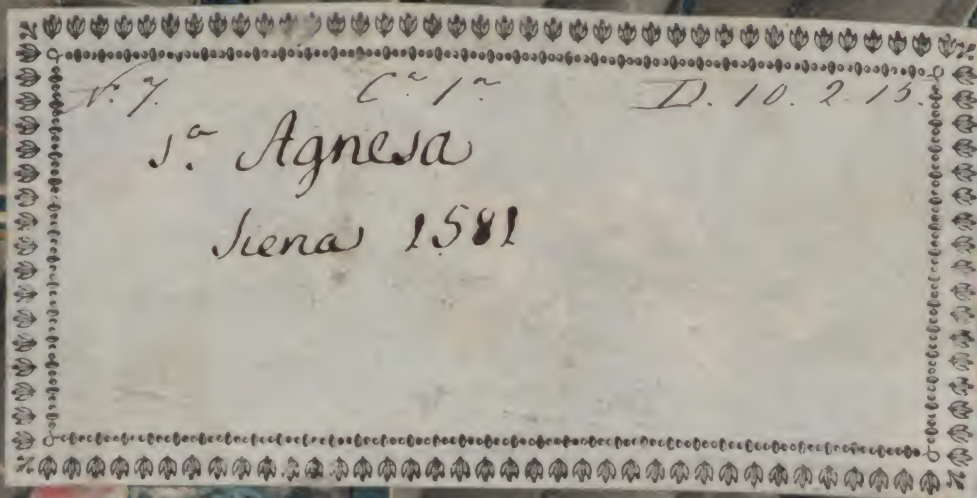 N. 7. C.ª 1.ª D. 10. 2. 15.
S.ª Agnesa
Siena 1581